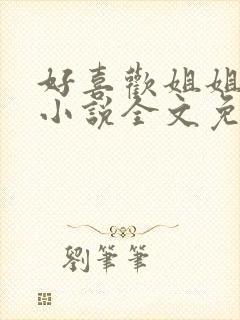 好喜歡姐姐
小說全文免
劉筆筆